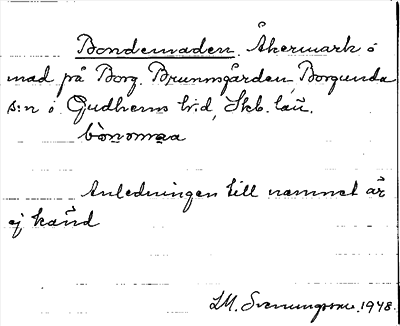 Bondemaden. Åkermark o
mad på Borg. Brunnsgården, Borgunda
s:n o Gudhems h:d, Skb. län.
bònomaa
Anledningen till namnet är
ej känd
LM. Svenungsson. 1948.